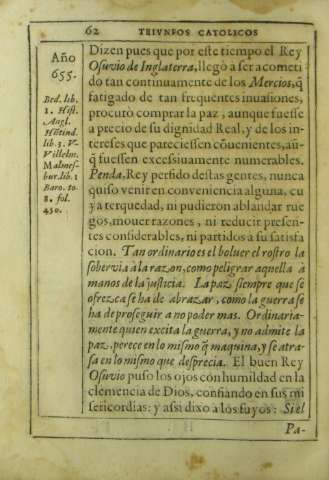 62 TRIVNFOS CATOLICOS
Año
655.
Bed. lib.
1. Hist.
Angl.
Hūtind.
lib. 3. V.
Vvilelm.
Malmes-
bur. lib. 1
Baro. to.
8. fol.
450.
Dizen pues que por este tiempo el Rey
Osuvio de Inglaterra, llegò a ser acometi
do tan continuamente de los Mercios, q̃
fatigado de tan frequentes inuasiones,
procurò comprar la paz, aunque fuesse
a precio de su dignidad Real, y de los in-
tereses que pareciessen cõuenientes, aũ-
q̃ fuessen excessiuamente numerables.
Penda, Rey perfido destas gentes, nunca
quiso venir en conveniencia alguna, cu
ya terquedad, ni pudieron ablandar rue
gos, mouer razones, ni reducir presen-
tes considerables, ni partidos a su satisfa
cion. Tan ordinario es el boluer el rostro la
sobervia à la razon, como peligrar aquella a
manos de la justicia. La paz siempre que se
ofrezca se ha de abrazar, como la guerra se
ha de proseguir a no poder mas. Ordinaria-
mente quien excita la guerra, y no admite la
paz, perece en lo mismo q̃ maquina, y se atra-
sa en lo mismo que desprecia. El buen Rey
Osuvio puso los ojos con humildad en la
clemencia de Dios, confiando en sus mi
sericordias: y assi dixo a los suyos: Si el
Pa-